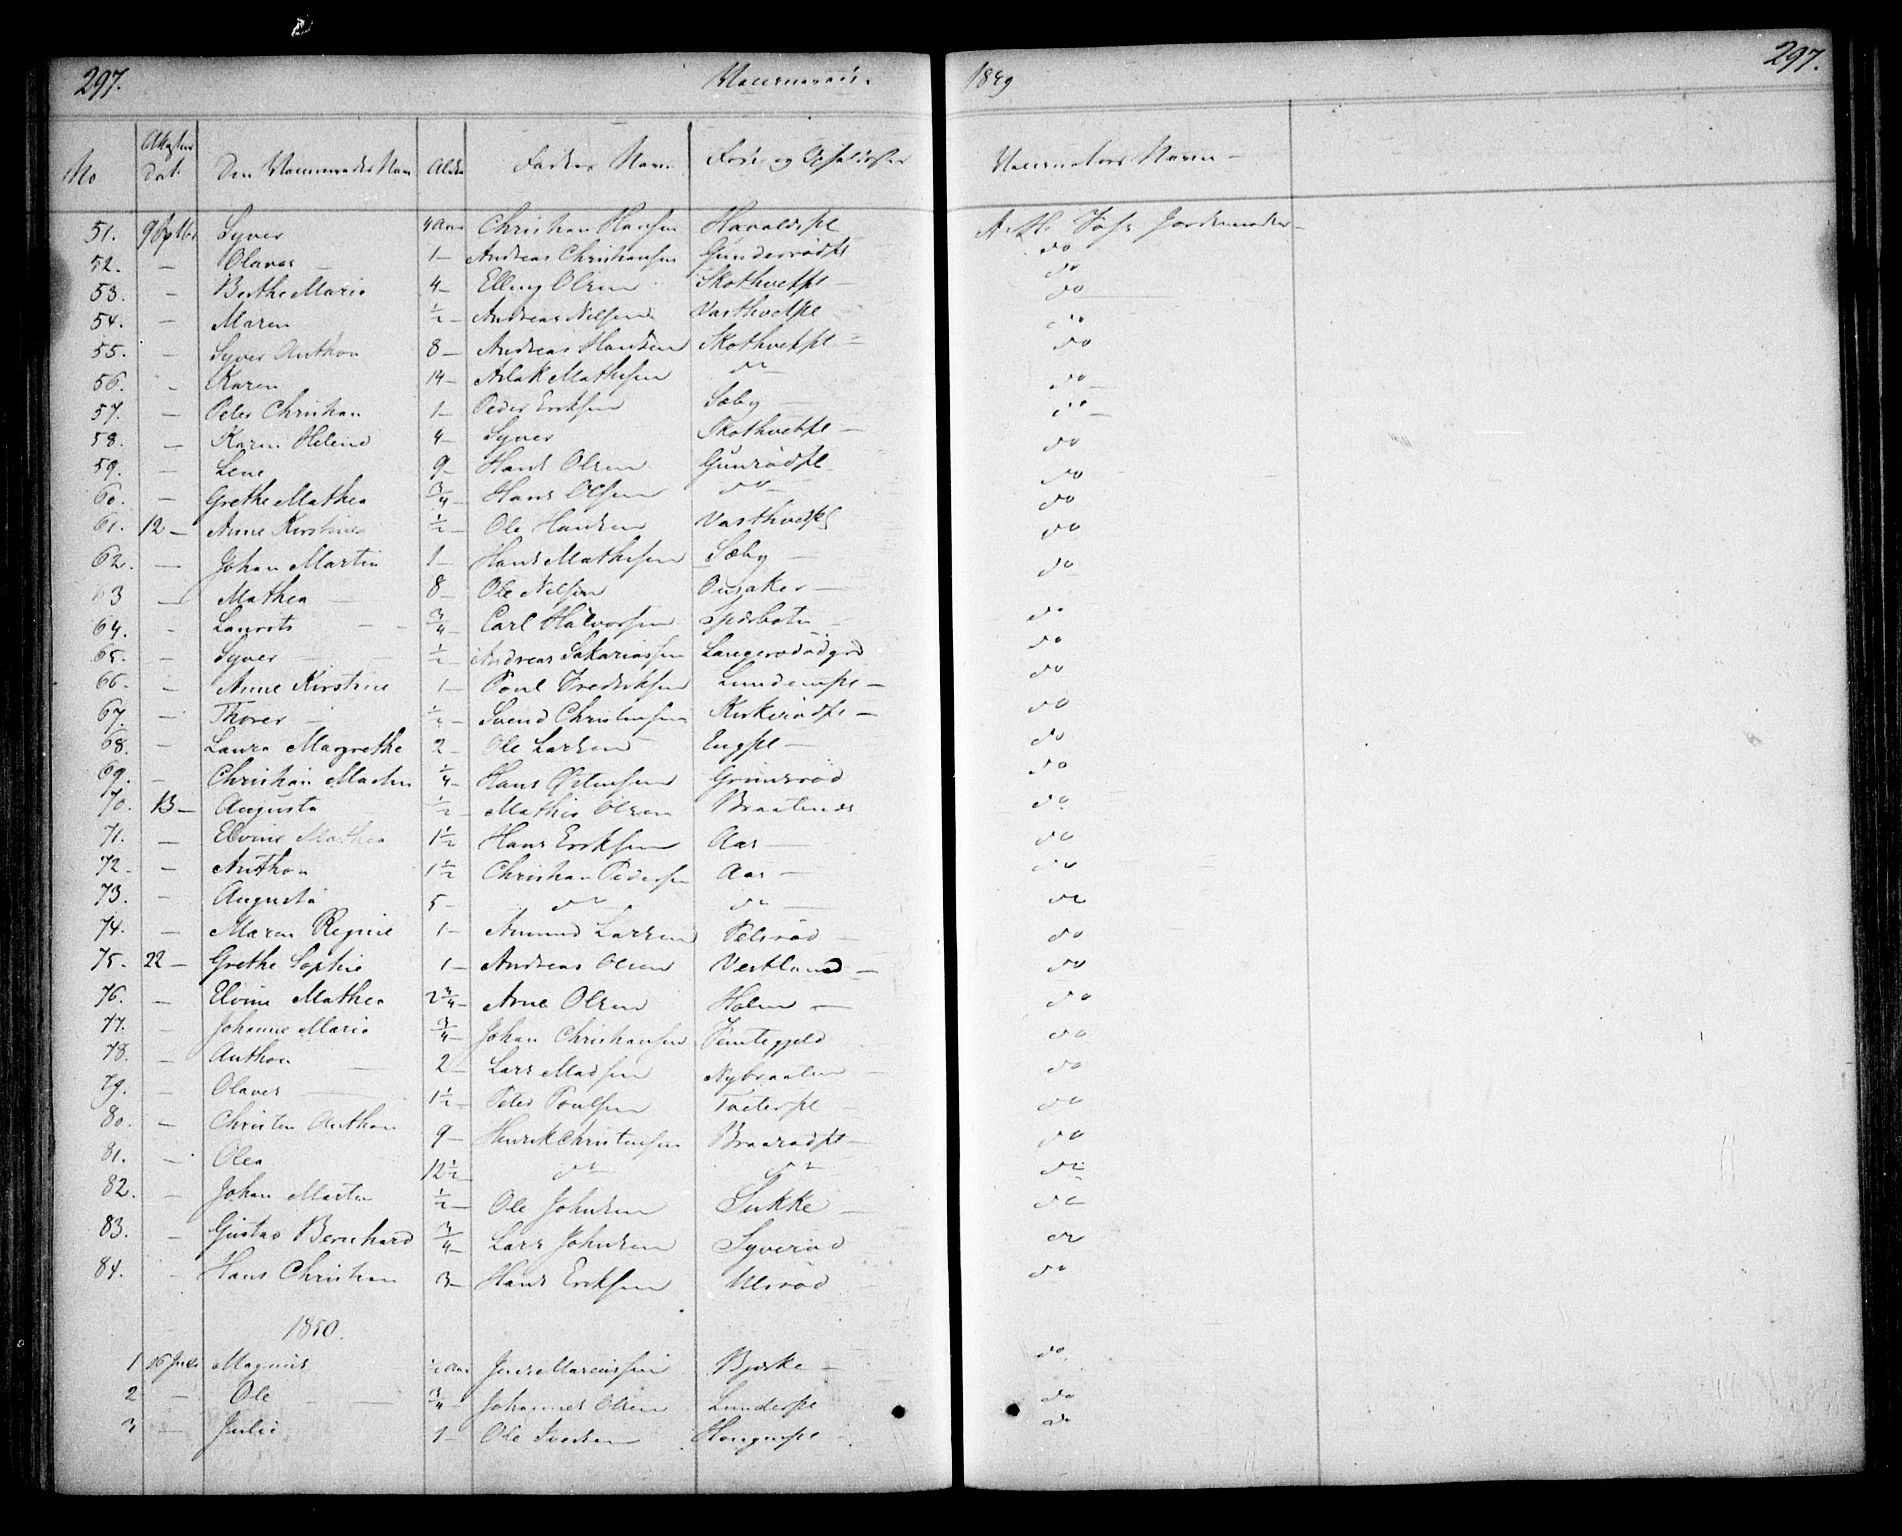 297. Vaccinerede. 1849 297.
No Attestens Dat. Den Vaccineredes Navn Alder Faders Navn Føde og Opholdssted Vaccinators Navn
51. 9 Syver 4 Aar Christian Hansen Havaldspl Jordemoder
52. — Olaves 1 — Andreas Christiansen Gunderrødpl do
53. — Berthe Marie 4 — Elling Olsen Skothvetpl — do
54. — Maren ½ — Andreas Nilsen Vasthvetpl do
55. — Syver Anthon 8 — Andreas Hansen Skothvetpl do
56. — Karen 14 — Aslak Mathisen do do
57. — Peder Christian 1 — Peder Eriksen Sæby do
58. — Karen Helene 4 — Syver Skothvetpl — do
59. — Lene 9 — Hans Olsen Gunrødpl do
60. — Grethe Mathea ¾ — Hans Olsen do do
61. 12 — Anne Kirstine ½ — Ole Hansen Vasthvetpl do
62. — Johan Martin 1 — Hans Mathisen Sæby — do
63 — Mathea — 8 — Ole Nilsen Onsaker — do
64. — Laurits ¾ — Carl Halvorsen do
65. — Syver ½ — Andreas Sakariassen do
66. — Anne Kirstine 1 — Poul Fredriksen — do
67. — Thorer — ½ — Svend Christensen Kirkerødpl — do
68. — Laura Margrethe 2 — Ole Larsen Engpl — do
69. — Christian Martin ¼ — Hans Grimsrød do
70. 13 — Augusta ½ — Mathis Olsen do
71. — Elvine Mathea 1½ Hans Eriksen Aas — do
72. — Anthon 1½ Christian Pedersen Aas — do
73. — Augusta 5 — do do — do
74. — Maren Regine 1 — Amund Larsen Pelsrød do
75. 22 — Grethe Sophie 1 — Andreas Olsen Vestlund — do
76. — Elvine Mathea 2¾ — Arne Olsen Holm — do
77. — Johanne Marie ¾ — Johan Christiansen do
78. — Anthon 2 — Lars Madsen Nybraaten do
79. — Olaves 1½ — Peder Poulsen Tveterpl do
80. — Christen Anthon 9 — Henrik Christensen Braarødpl — do
81. — Olea 12½ do do do
82. — Johan Martin ½ — Ole Johnsen Sukke — do
83. — Gustav Bernhard ¾ — Lars Johnsen Syverød do
84. — Hans Christian 3 — Hans Eriksen Ulsrød do
1850.
1 16 Magnus Aar Jens Marcussen Bjerke — do
2 — Ole ¾ Johannes Olsen Lunderpl do
3 — Julie 1 — Ole do